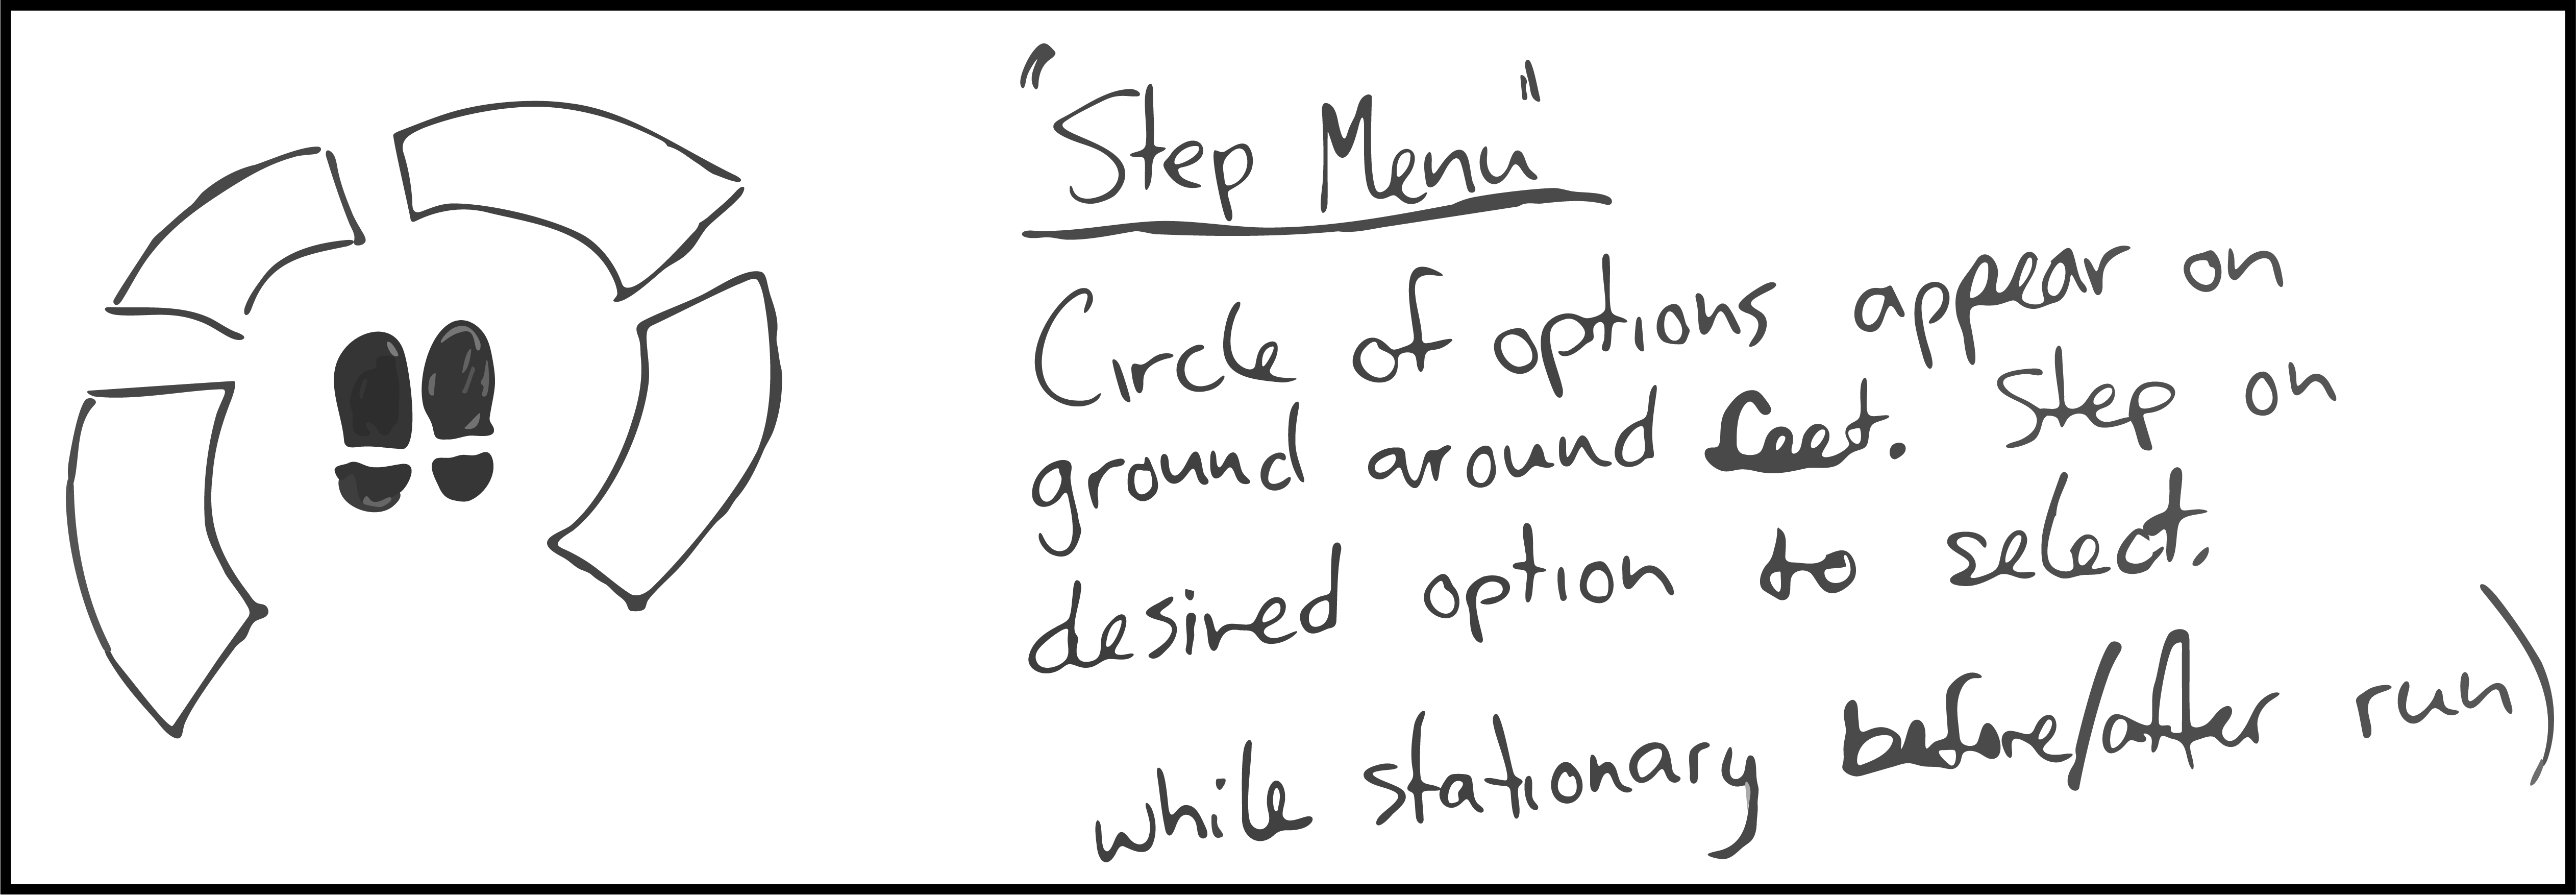 "Step Menu"
Circle of options appear on
ground around feet. Step on
desired option to select.
while stationary before/after run)